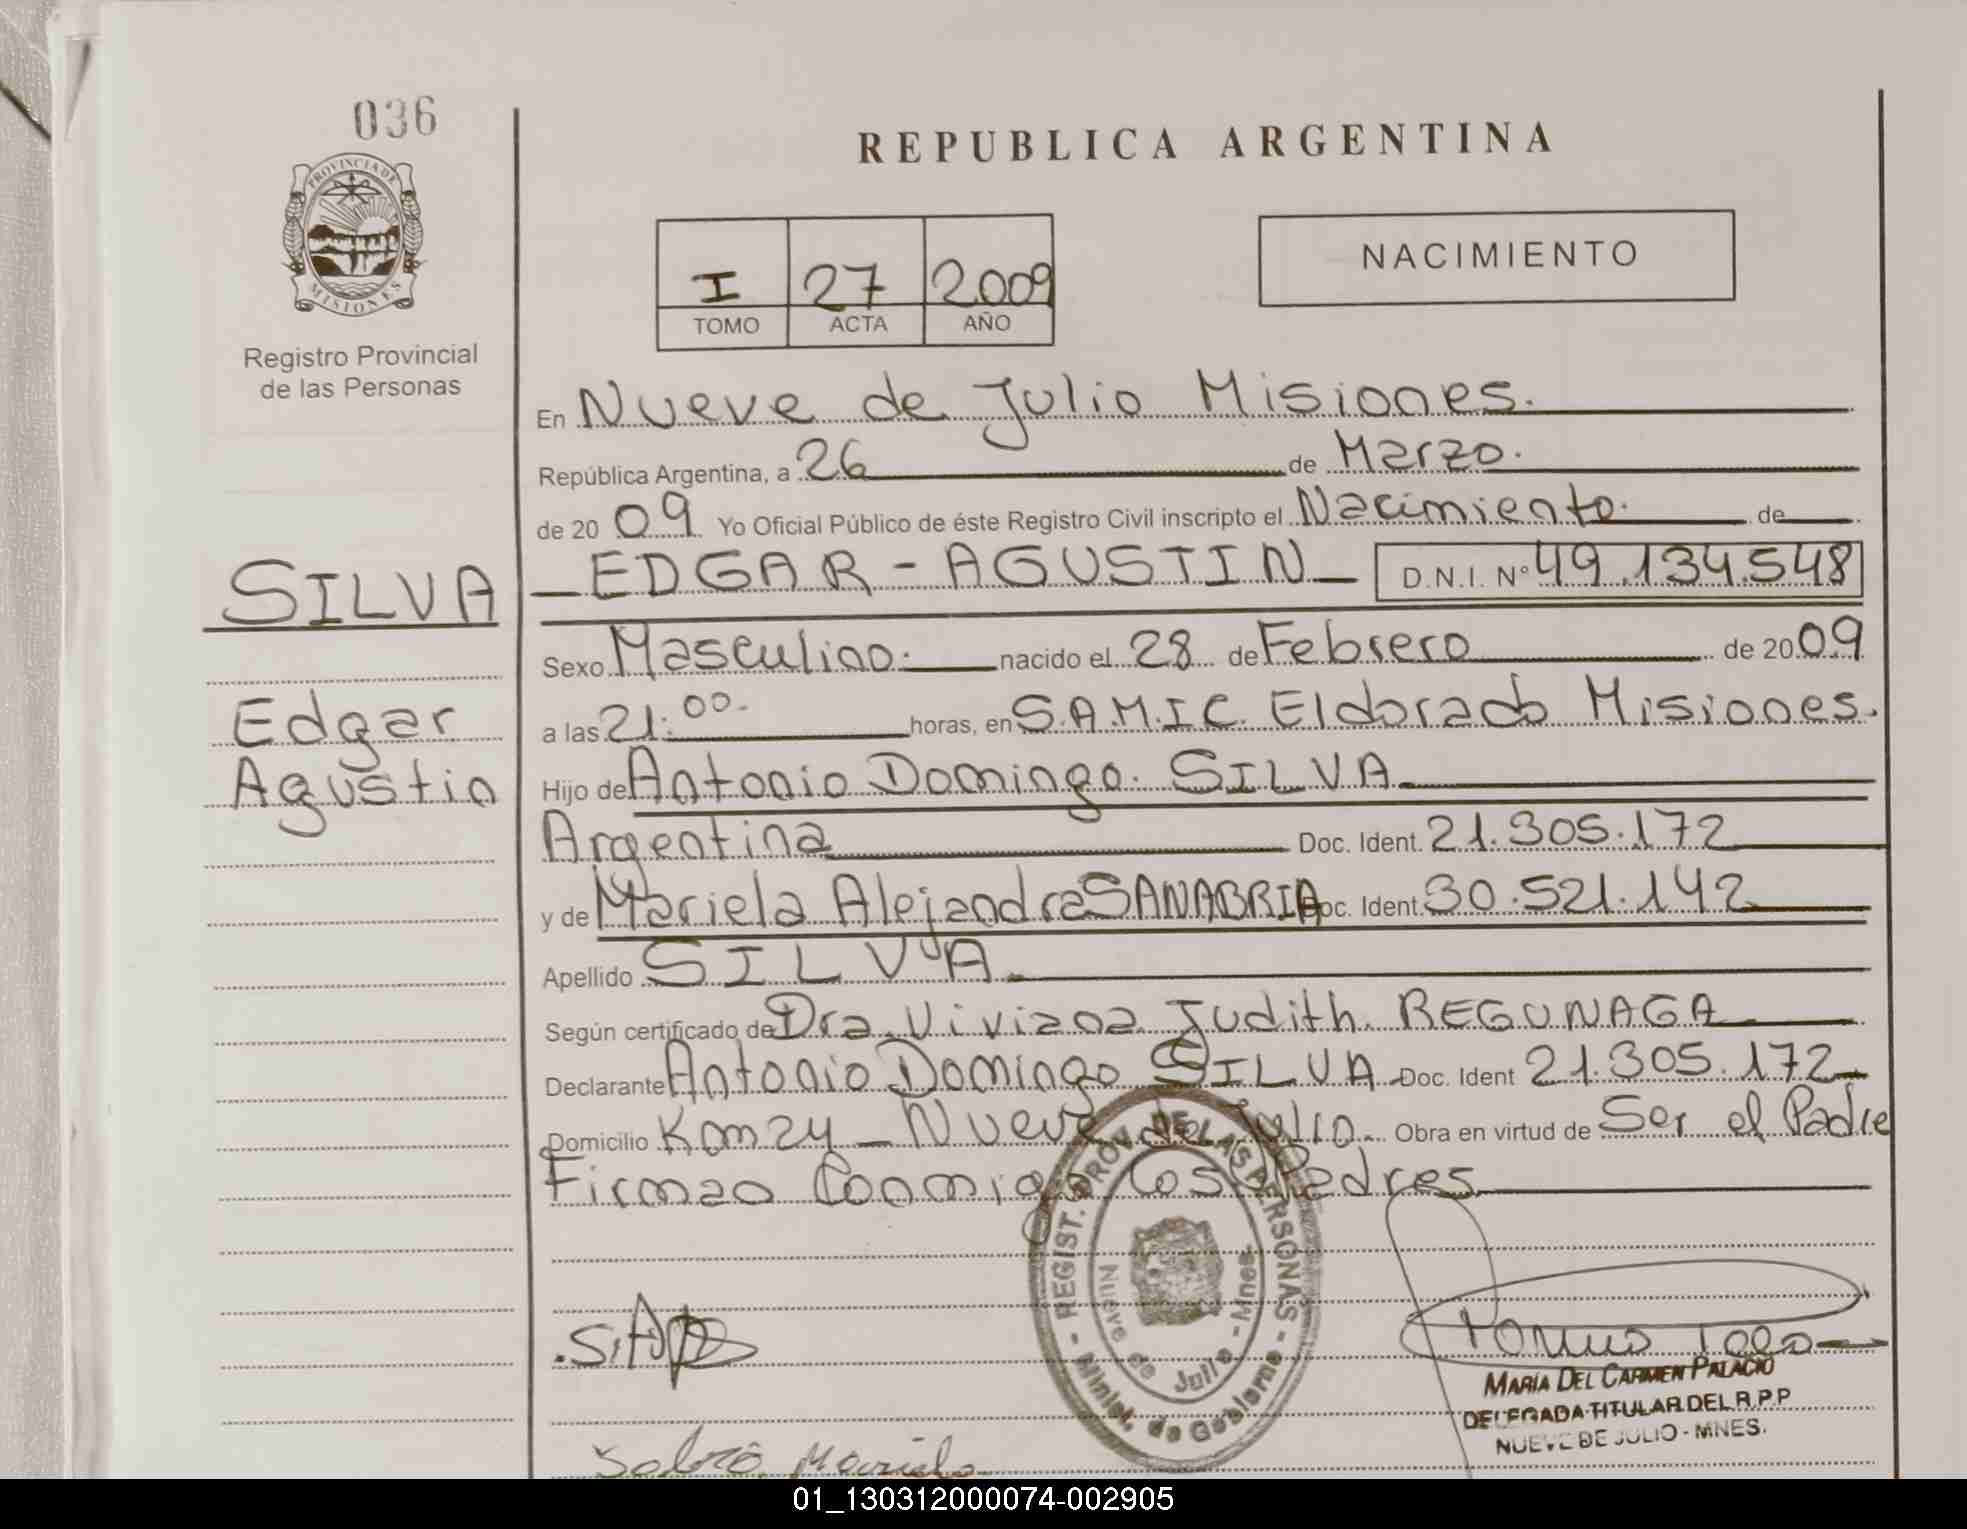 036
PROVINCIA DE
MISIONES
Registro Provincial
de las Personas
SILVA
Edgar
Agustin
REPUBLICA ARGENTINA
I 27 2009
TOMO ACTA AÑO
NACIMIENTO
En Nueve de Julio Misiones.
República Argentina, a 26 de Marzo.
de 2009 Yo Oficial Público de éste Registro Civil inscripto el Nacimiento. de
EDGAR - AGUSTIN D.N.I. Nº 49.134.548
Sexo Masculino. nacido el 28 de Febrero de 2009
a las 21:00. horas, en S.A.M.I.C. Eldorado Misiones.
Hijo de Antonio Domingo. SILVA
Argentina Doc. Ident. 21.305.172
y de Mariela Alejandra SANABRIA Doc. Ident. 30.521.142
Apellido SILVA
Según certificado de Dra. Viviana Judith. REGUNAGA
Declarante Antonio Domingo SILVA Doc. Ident 21.305.172
Domicilio Km 24 - Nueve de Julio. Obra en virtud de Ser el Padre
Firman Conmigo Los Padres
REGIST. PROV. DE LAS PERSONAS - Minist. de Gobierno -
Nueve de Julio - Mnes.
MARIA DEL CARMEN PALACIO
DELEGADA TITULAR DEL R.P.P
NUEVE DE JULIO - MNES.
01_130312000074-002905